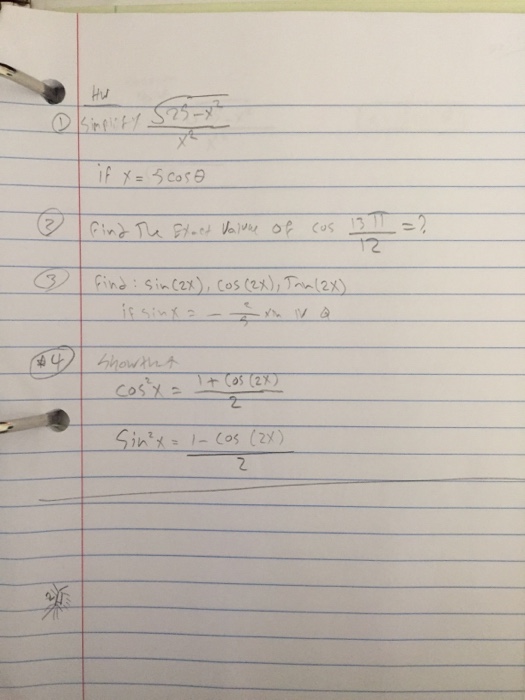 HW
① Simplify √25-x² / x²
if x = 5 cos θ
② Find The Exact Value of cos 13π/12 = ?
③ Find: sin(2x), cos(2x), Tan(2x)
if sin x = - 2/5 x in IV Q
#4 Show that
cos²x = 1 + Cos (2x) / 2
Sin²x = 1 - Cos (2x) / 2